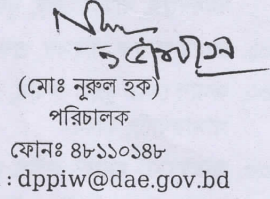 (মোঃ নূরুল হক)
পরিচালক
ফোনঃ ৪৮১১০১৪৮
: dppiw@dae.gov.bd